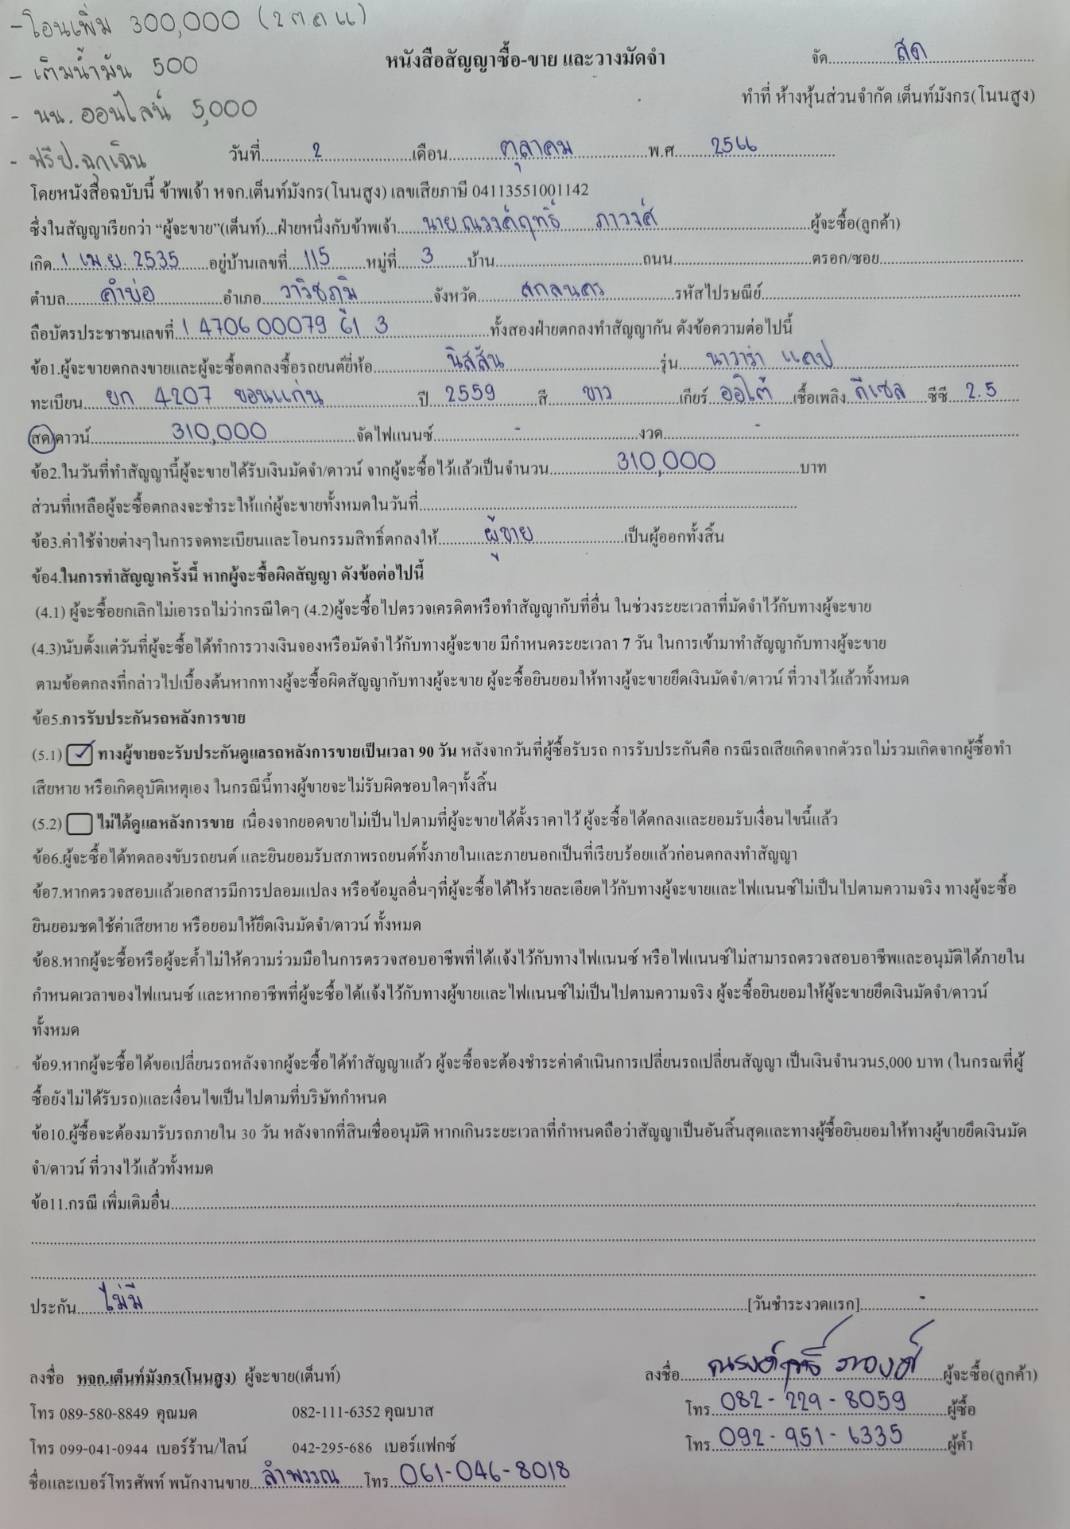 - โอนเพิ่ม 300,000 (2 ต.ค 66)
- เติมน้ำมัน 500
- นน. ออนไลน์ 5,000
- ฟรี ป.ฉุกเฉิน
หนังสือสัญญาซื้อ-ขาย และวางมัดจำ
จัด สด
ทำที่ ห้างหุ้นส่วนจำกัด เต็นท์มังกร(โนนสูง)
วันที่ 2 เดือน ตุลาคม พ.ศ 2566
โดยหนังสือฉบับนี้ ข้าพเจ้า หจก.เต็นท์มังกร(โนนสูง) เลขเสียภาษี 04113551001142
ซึ่งในสัญญาเรียกว่า "ผู้จะขาย"(เต็นท์)...ฝ่ายหนึ่งกับข้าพเจ้า นาย ณรงค์ฤทธิ์ ภาวงศ์ ผู้จะซื้อ(ลูกค้า)
เกิด 1 เม.ย. 2535 อยู่บ้านเลขที่ 115 หมู่ที่ 3 บ้าน ถนน ตรอก/ซอย
ตำบล คำบ่อ อำเภอ วาริชภูมิ จังหวัด สกลนคร รหัสไปรษณีย์
ถือบัตรประชาชนเลขที่ 1 4706 00079 61 3 ทั้งสองฝ่ายตกลงทำสัญญากัน ดังข้อความต่อไปนี้
ข้อ1.ผู้จะขายตกลงขายและผู้จะซื้อตกลงซื้อรถยนต์ยี่ห้อ นิสสัน รุ่น นาวาร่า แคป
ทะเบียน ยก 4207 ขอนแก่น ปี 2559 สี ขาว เกียร์ ออโต้ เชื้อเพลิง ดีเซล ซีซี 2.5
สด/ดาวน์ 310,000 จัดไฟแนนซ์ - งวด -
ข้อ2.ในวันที่ทำสัญญานี้ผู้จะขายได้รับเงินมัดจำ/ดาวน์ จากผู้จะซื้อไว้แล้วเป็นจำนวน 310,000 บาท
ส่วนที่เหลือผู้จะซื้อตกลงจะชำระให้แก่ผู้จะขายทั้งหมดในวันที่
ข้อ3.ค่าใช้จ่ายต่างๆในการจดทะเบียนและโอนกรรมสิทธิ์ตกลงให้ ผู้ขาย เป็นผู้ออกทั้งสิ้น
ข้อ4.ในการทำสัญญาครั้งนี้ หากผู้จะซื้อผิดสัญญา ดังข้อต่อไปนี้
(4.1) ผู้จะซื้อยกเลิกไม่เอารถไม่ว่ากรณีใดๆ (4.2)ผู้จะซื้อไปตรวจเครดิตหรือทำสัญญากับที่อื่น ในช่วงระยะเวลาที่มัดจำไว้กับทางผู้จะขาย
(4.3)นับตั้งแต่วันที่ผู้จะซื้อได้ทำการวางเงินจองหรือมัดจำไว้กับทางผู้จะขาย มีกำหนดระยะเวลา 7 วัน ในการเข้ามาทำสัญญากับทางผู้จะขาย
ตามข้อตกลงที่กล่าวไปเบื้องต้นหากทางผู้จะซื้อผิดสัญญากับทางผู้จะขาย ผู้จะซื้อยินยอมให้ทางผู้จะขายยึดเงินมัดจำ/ดาวน์ ที่วางไว้แล้วทั้งหมด
ข้อ5.การรับประกันรถหลังการขาย
(5.1) ✓ ทางผู้ขายจะรับประกันดูแลรถหลังการขายเป็นเวลา 90 วัน หลังจากวันที่ผู้ซื้อรับรถ การรับประกันคือ กรณีรถเสียเกิดจากตัวรถ ไม่รวมเกิดจากผู้ซื้อทำ
เสียหาย หรือเกิดอุบัติเหตุเอง ในกรณีนี้ทางผู้ขายจะไม่รับผิดชอบใดๆทั้งสิ้น
(5.2) ไม่ได้ดูแลหลังการขาย เนื่องจากยอดขายไม่เป็นไปตามที่ผู้จะขายได้ตั้งราคาไว้ ผู้จะซื้อได้ตกลงและยอมรับเงื่อนไขนี้แล้ว
ข้อ6.ผู้จะซื้อได้ทดลองขับรถยนต์ และยินยอมรับสภาพรถยนต์ทั้งภายในและภายนอกเป็นที่เรียบร้อยแล้วก่อนตกลงทำสัญญา
ข้อ7.หากตรวจสอบแล้วเอกสารมีการปลอมแปลง หรือข้อมูลอื่นๆที่ผู้จะซื้อได้ให้รายละเอียดไว้กับทางผู้จะขายและไฟแนนซ์ไม่เป็นไปตามความจริง ทางผู้จะซื้อ
ยินยอมชดใช้ค่าเสียหาย หรือยอมให้ยึดเงินมัดจำ/ดาวน์ ทั้งหมด
ข้อ8.หากผู้จะซื้อหรือผู้จะค้ำไม่ให้ความร่วมมือในการตรวจสอบอาชีพที่ได้แจ้งไว้กับทางไฟแนนซ์ หรือไฟแนนซ์ไม่สามารถตรวจสอบอาชีพและอนุมัติได้ภายใน
กำหนดเวลาของไฟแนนซ์ และหากอาชีพที่ผู้จะซื้อได้แจ้งไว้กับทางผู้ขายและไฟแนนซ์ไม่เป็นไปตามความจริง ผู้จะซื้อยินยอมให้ผู้จะขายยึดเงินมัดจำ/ดาวน์
ทั้งหมด
ข้อ9.หากผู้จะซื้อได้ขอเปลี่ยนรถหลังจากผู้จะซื้อได้ทำสัญญาแล้ว ผู้จะซื้อจะต้องชำระค่าดำเนินการเปลี่ยนรถเปลี่ยนสัญญา เป็นเงินจำนวน5,000 บาท (ในกรณที่ผู้
ซื้อยังไม่ได้รับรถ)และเงื่อนไขเป็นไปตามที่บริษัทกำหนด
ข้อ10.ผู้ซื้อจะต้องมารับรถภายใน 30 วัน หลังจากที่สินเชื่ออนุมัติ หากเกินระยะเวลาที่กำหนดถือว่าสัญญาเป็นอันสิ้นสุดและทางผู้ซื้อยินยอมให้ทางผู้ขายยึดเงินมัด
จำ/ดาวน์ ที่วางไว้แล้วทั้งหมด
ข้อ11.กรณี เพิ่มเติมอื่น
ประกัน ไม่มี [วันชำระงวดแรก] -
ลงชื่อ หจก.เต็นท์มังกร(โนนสูง) ผู้จะขาย(เต็นท์) ลงชื่อ ณรงค์ฤทธิ์ ภาวงศ์ ผู้จะซื้อ(ลูกค้า)
โทร 089-580-8849 คุณมด 082-111-6352 คุณบาส โทร 082-229-8059 ผู้ซื้อ
โทร 099-041-0944 เบอร์ร้าน/ไลน์ 042-295-686 เบอร์แฟกซ์ โทร 092-951-6335 ผู้ค้ำ
ชื่อและเบอร์โทรศัพท์ พนักงานขาย ลำพรรณ โทร 061-046-8018